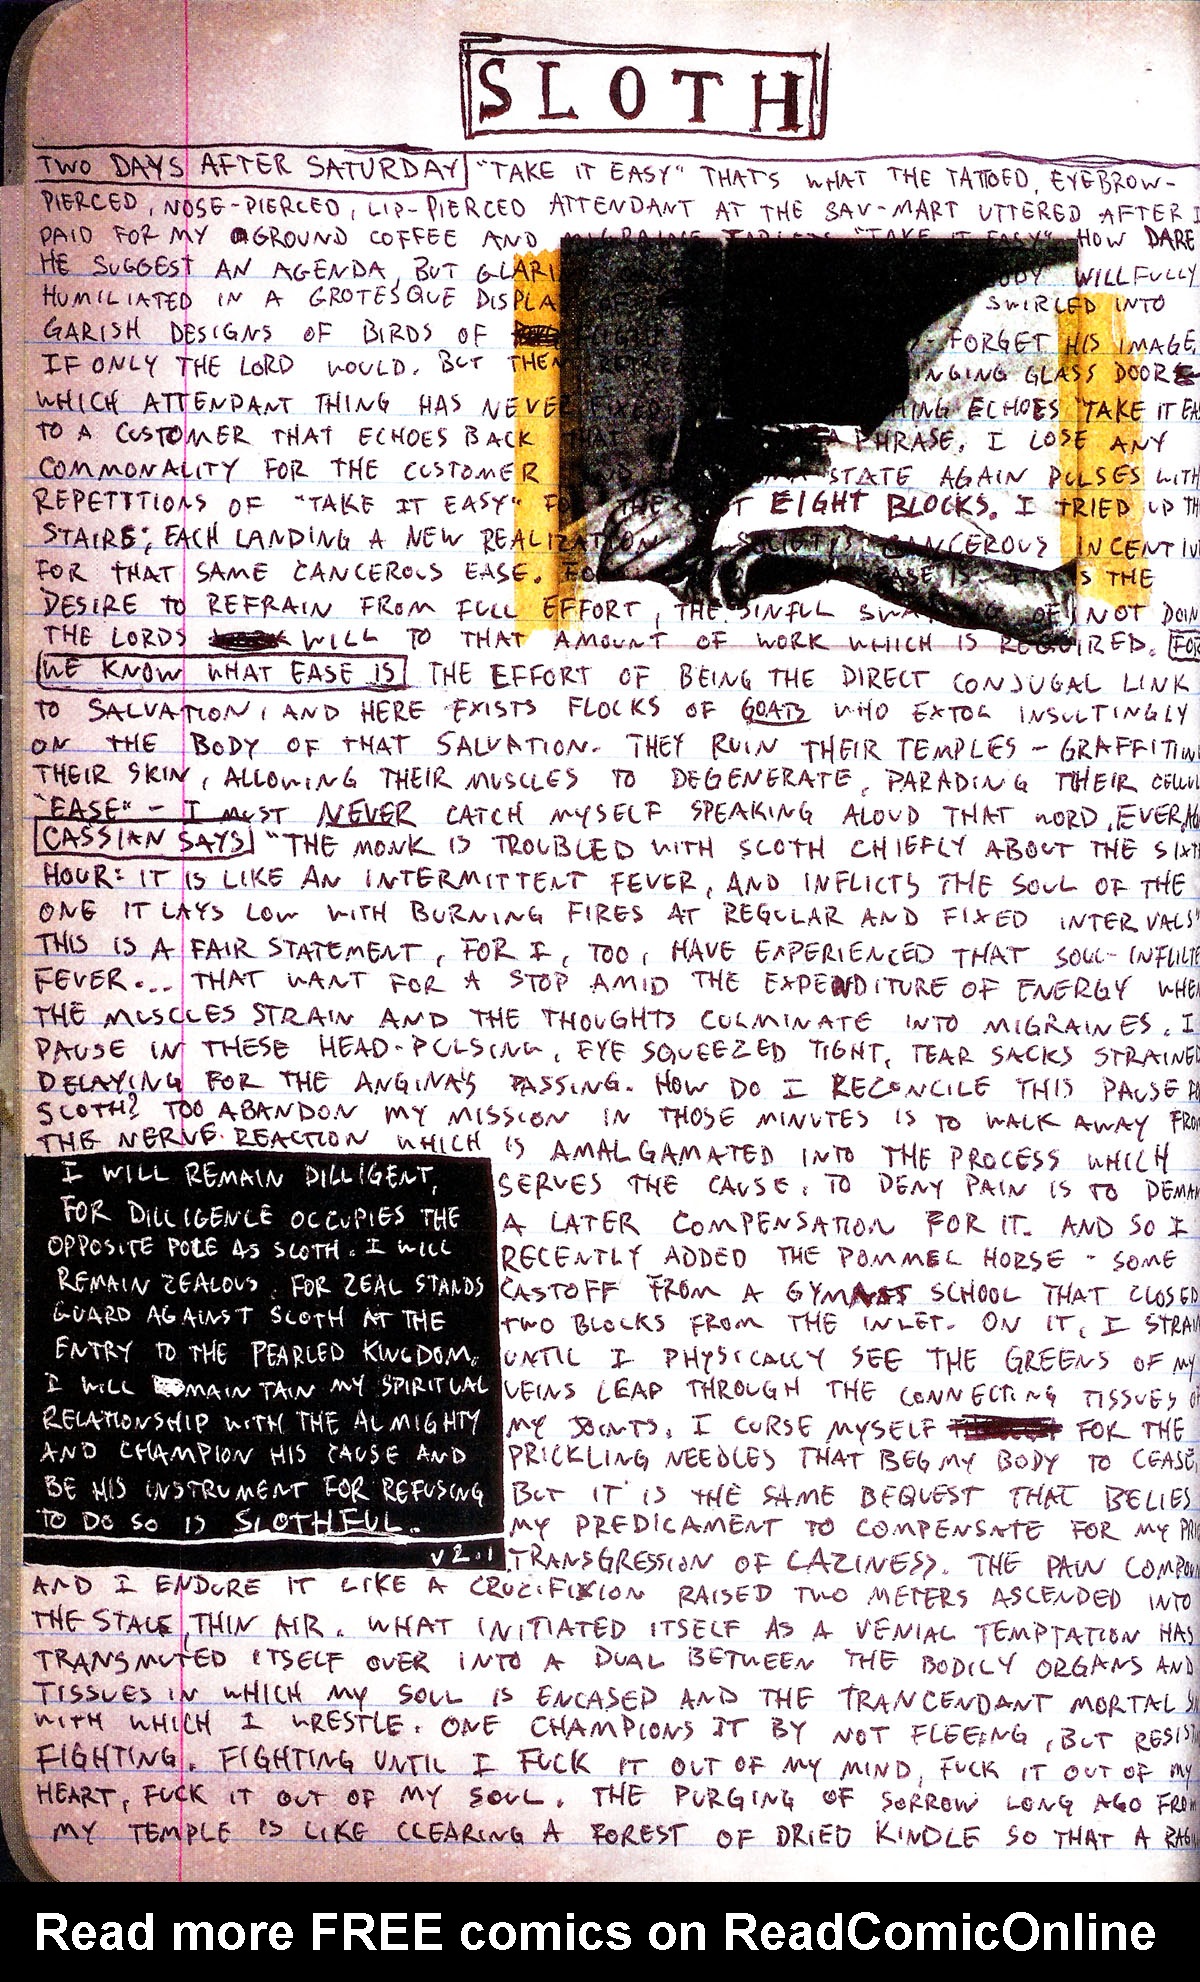 SLOTH
TWO DAYS AFTER SATURDAY "TAKE IT EASY" THAT'S WHAT THE TATTOED, EYEBROW-
PIERCED, NOSE-PIERCED, LIP-PIERCED ATTENDANT AT THE SAV-MART UTTERED AFTER I
PAID FOR MY GROUND COFFEE AND MIGRAINE TABLETS "TAKE IT EASY" HOW DARE
HE SUGGEST AN AGENDA, BUT GLARI BODY WILLFULLY
HUMILIATED IN A GROTESQUE DISPLA OF SWIRLED INTO
GARISH DESIGNS OF BIRDS OF FLIGHT FORGET HIS IMAGE,
IF ONLY THE LORD WOULD. BUT THEN RETREA NGING GLASS DOOR
WHICH ATTENDANT THING HAS NEVER FIXED HING ECHOES "TAKE IT EA
TO A CUSTOMER THAT ECHOES BACK THAT A PHRASE. I LOSE ANY
COMMONALITY FOR THE CUSTOMER STATE AGAIN PULSES WITH
REPETITIONS OF "TAKE IT EASY" FO THE T EIGHT BLOCKS. I TRIED UP TH
STAIRS; EACH LANDING A NEW REALIZATION SOCIETY'S CANCEROUS INCENTIV
FOR THAT SAME CANCEROUS EASE. FO EASE IS IT IS THE
DESIRE TO REFRAIN FROM FULL EFFORT, THE SINFUL SWA OF NOT DOIN
THE LORDS WILL TO THAT AMOUNT OF WORK WHICH IS REQUIRED. FOR
WE KNOW WHAT EASE IS THE EFFORT OF BEING THE DIRECT CONJUGAL LINK
TO SALVATION, AND HERE EXISTS FLOCKS OF GOATS WHO EXTOL INSULTINGLY
ON THE BODY OF THAT SALVATION. THEY RUIN THEIR TEMPLES - GRAFFITIN
THEIR SKIN, ALLOWING THEIR MUSCLES TO DEGENERATE, PARADING THEIR CELLUL
"EASE" - I MUST NEVER CATCH MYSELF SPEAKING ALOUD THAT WORD, EVER AG
CASSIAN SAYS "THE MONK IS TROUBLED WITH SLOTH CHIEFLY ABOUT THE SIXTH
HOUR: IT IS LIKE AN INTERMITTENT FEVER, AND INFLICTS THE SOUL OF THE
ONE IT LAYS LOW WITH BURNING FIRES AT REGULAR AND FIXED INTERVALS"
THIS IS A FAIR STATEMENT, FOR I, TOO, HAVE EXPERIENCED THAT SOUL-INFLICTE
FEVER... THAT WANT FOR A STOP AMID THE EXPENDITURE OF ENERGY WHEN
THE MUSCLES STRAIN AND THE THOUGHTS CULMINATE INTO MIGRAINES. I
PAUSE IN THESE HEAD-PULSING, EYE SQUEEZED TIGHT, TEAR SACKS STRAINED
DELAYING FOR THE ANGINA'S PASSING. HOW DO I RECONCILE THIS PAUSE
SLOTH? TOO ABANDON MY MISSION IN THOSE MINUTES IS TO WALK AWAY FROM
THE NERVE-REACTION WHICH IS AMALGAMATED INTO THE PROCESS WHICH
SERVES THE CAUSE. TO DENY PAIN IS TO DEMAN
A LATER COMPENSATION FOR IT. AND SO I
RECENTLY ADDED THE POMMEL HORSE - SOME
CASTOFF FROM A GYMNAST SCHOOL THAT CLOSED
TWO BLOCKS FROM THE INLET. ON IT, I STRAIN
UNTIL I PHYSICALLY SEE THE GREENS OF MY
VEINS LEAP THROUGH THE CONNECTING TISSUES OF
MY JOINTS. I CURSE MYSELF FOR THE
PRICKLING NEEDLES THAT BEG MY BODY TO CEASE,
BUT IT IS THE SAME BEQUEST THAT BELIES
MY PREDICAMENT TO COMPENSATE FOR MY PRI
TRANSGRESSION OF LAZINESS. THE PAIN COMPOUN
I WILL REMAIN DILLIGENT,
FOR DILLIGENCE OCCUPIES THE
OPPOSITE POLE AS SLOTH. I WILL
REMAIN ZEALOUS. FOR ZEAL STANDS
GUARD AGAINST SLOTH AT THE
ENTRY TO THE PEARLED KINGDOM.
I WILL MAINTAIN MY SPIRITUAL
RELATIONSHIP WITH THE ALMIGHTY
AND CHAMPION HIS CAUSE AND
BE HIS INSTRUMENT FOR REFUSING
TO DO SO IS SLOTHFUL.
v2.1
AND I ENDURE IT LIKE A CRUCIFIXION RAISED TWO METERS ASCENDED INTO
THE STALE, THIN AIR. WHAT INITIATED ITSELF AS A VENIAL TEMPTATION HAS
TRANSMUTED ITSELF OVER INTO A DUAL BETWEEN THE BODILY ORGANS AND
TISSUES IN WHICH MY SOUL IS ENCASED AND THE TRANCENDANT MORTAL SI
WITH WHICH I WRESTLE. ONE CHAMPIONS IT BY NOT FLEEING, BUT RESISTI
FIGHTING. FIGHTING UNTIL I FUCK IT OUT OF MY MIND, FUCK IT OUT OF MY
HEART, FUCK IT OUT OF MY SOUL. THE PURGING OF SORROW LONG AGO FROM
MY TEMPLE IS LIKE CLEARING A FOREST OF DRIED KINDLE SO THAT A RAGIN
Read more FREE comics on ReadComicOnline